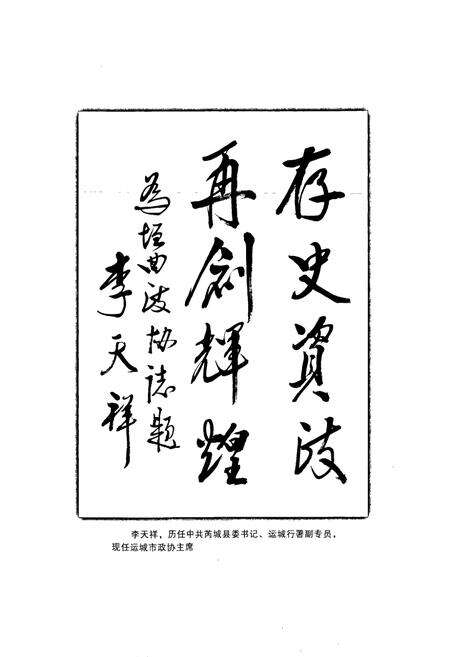 存史資政
再創輝煌
為垣曲政协誌題
李天祥
李天祥，历任中共芮城县委书记、运城行署副专员，
现任运城市政协主席